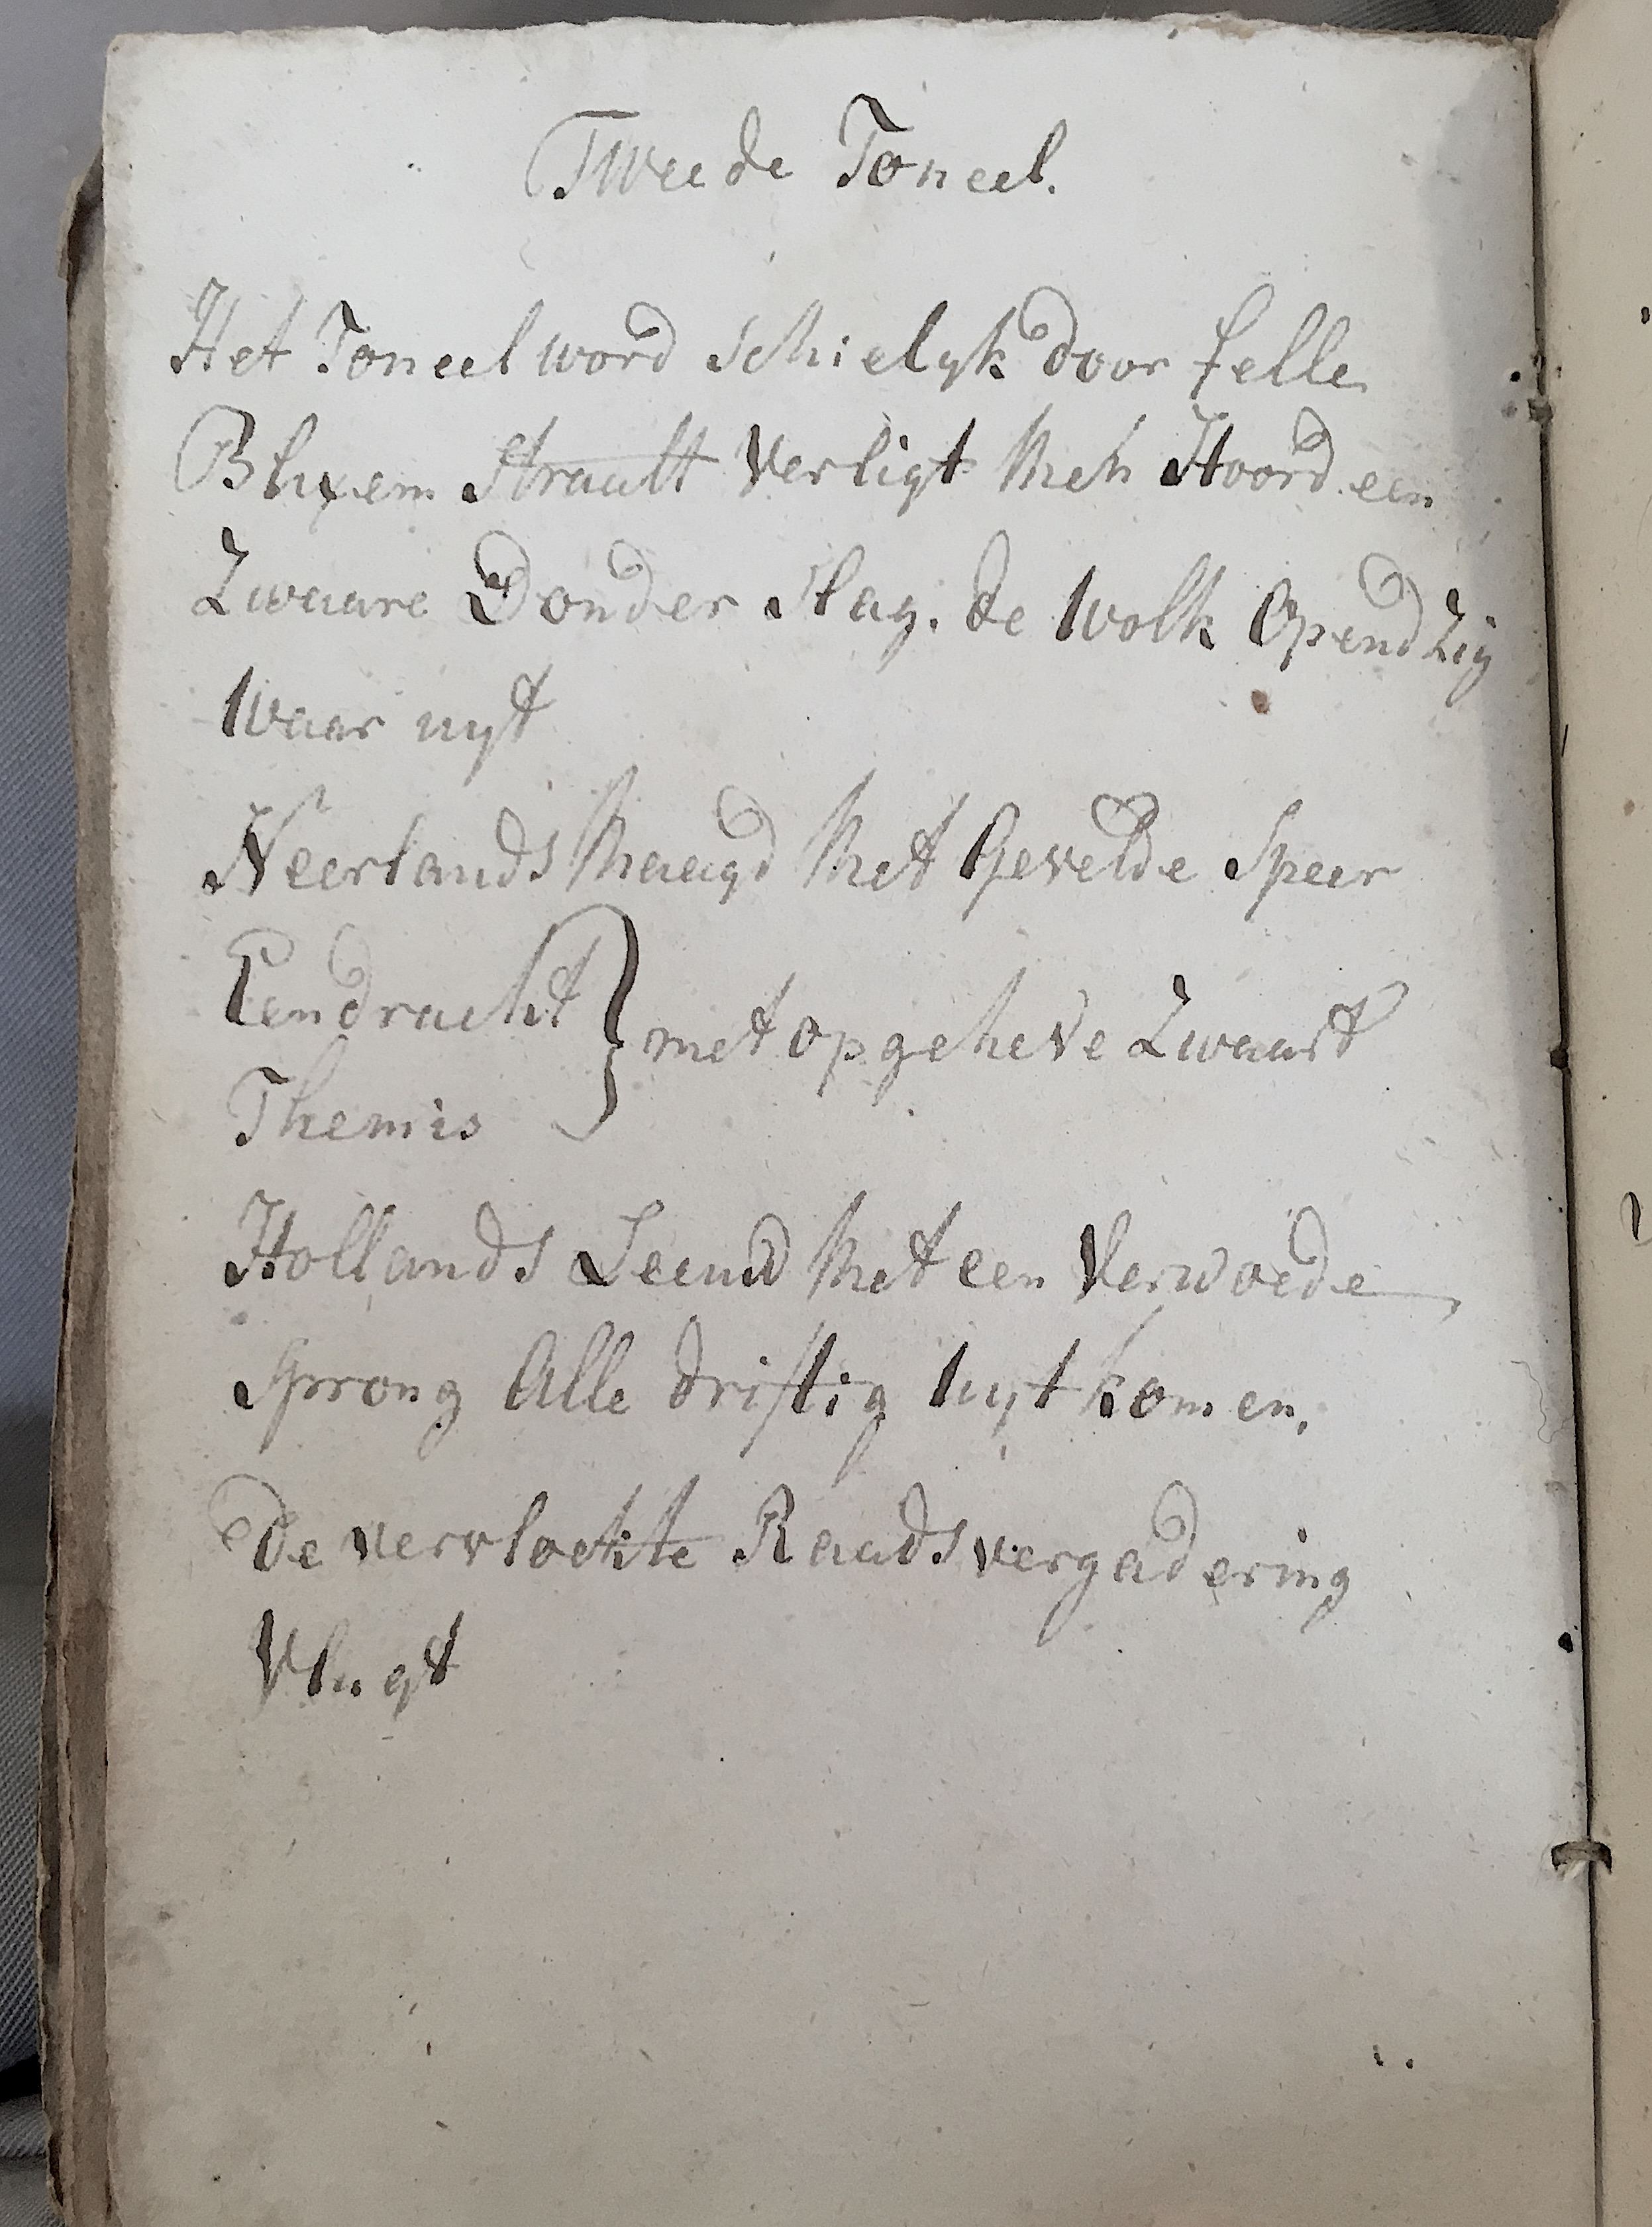 Tweede Toneel.
Het Toneel word schielyk door felle
Blixem Straalt Verligt Men Hoord een
Zwaare Donder Slag. de Wolk Opend Zig
Waar uyt
Neerlands Maagd Met Gevelde Speer
Eendracht } met opgeheve Zwaart
Themis
Hollands Leeuw Met een Verwoede
Sprong Alle driftig uyt komen,
De vervlockte Raadsvergadering
Vlugt